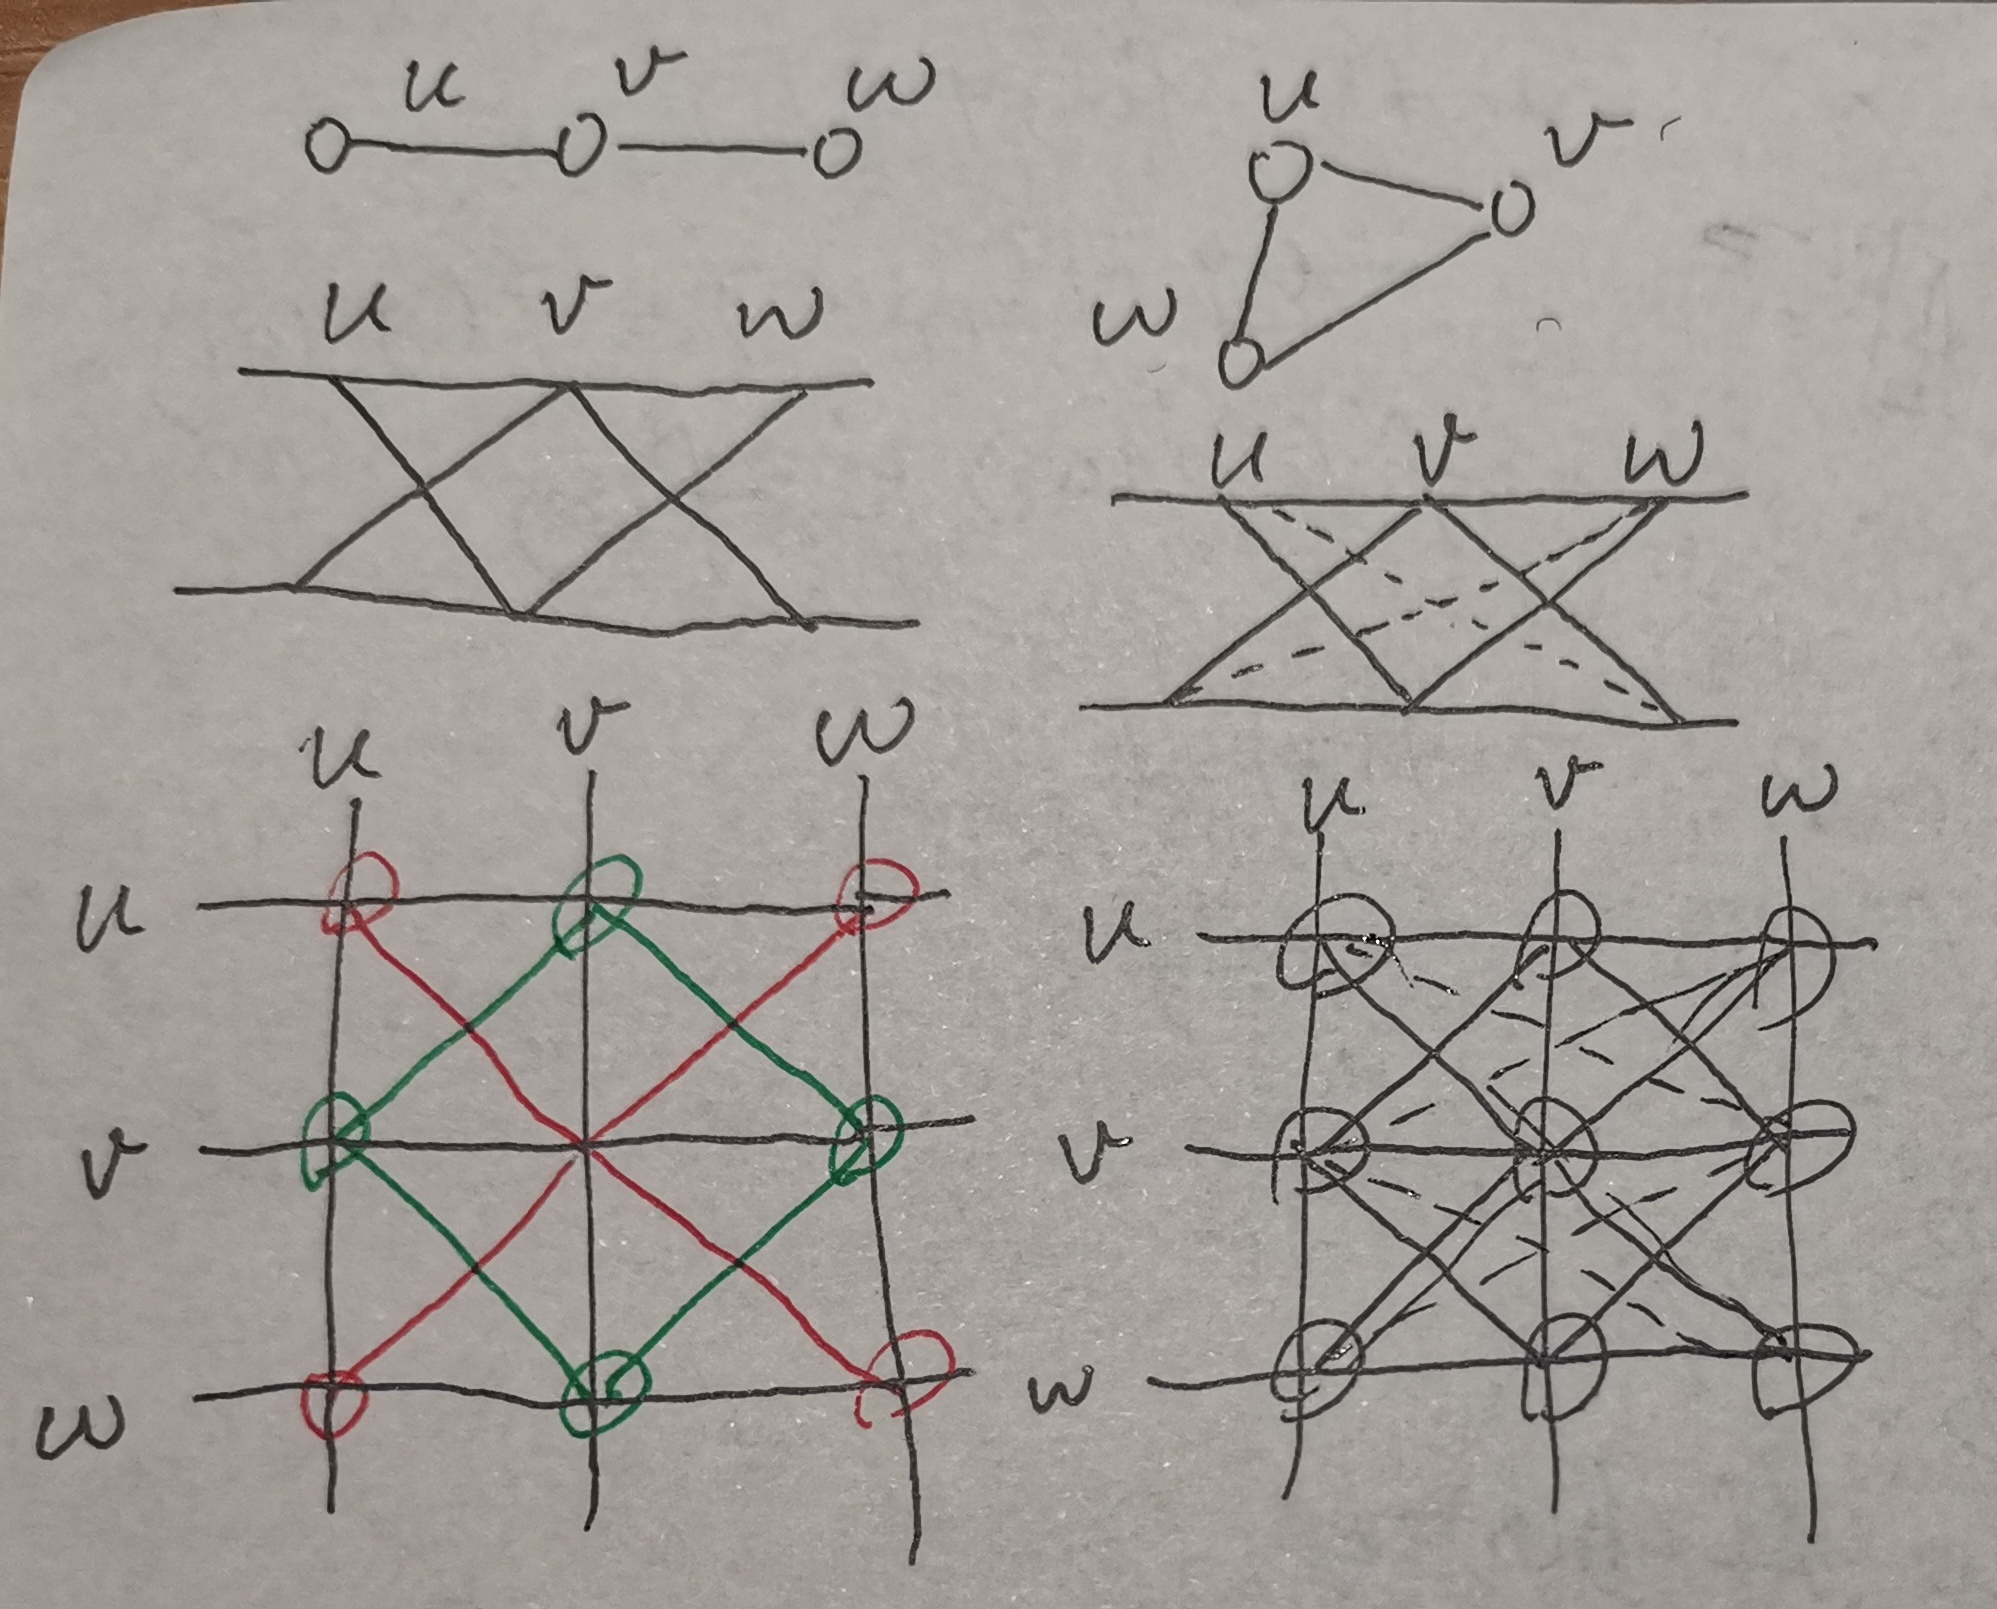 u v w
u v w
u v w
u
v
w
u
v
w
u v w
u v w
u
v
w